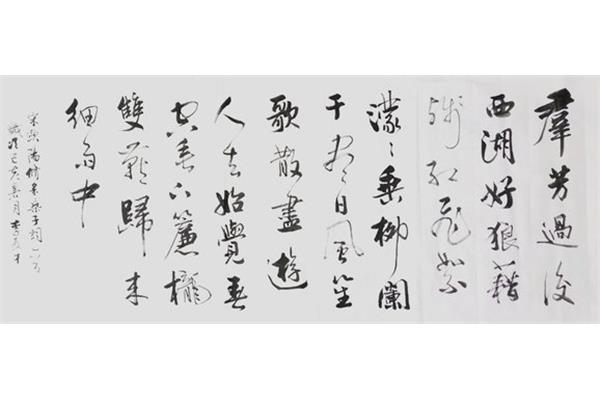 羣芳過後
西湖好狼藉
残紅飛絮
濛〻垂柳闌
干尽日風笙
歌散盡遊
人去始覺春
空垂下簾櫳
雙燕歸来
細雨中
宋歐陽修采桑子詞一首
歲次己亥春月